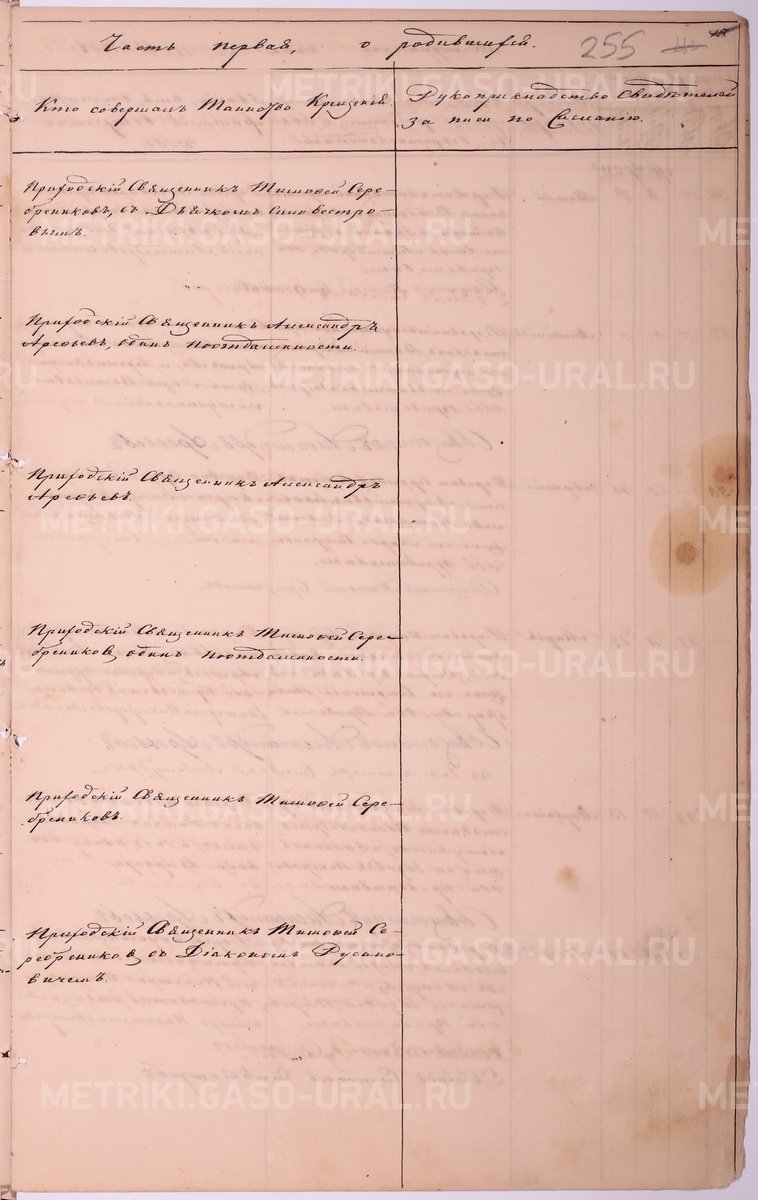 Часть первая, о родившихся. 255
Кто совершалъ Таинство Крещенія.
Рукоприкладство Свидѣтелей
записи по желанію.
Приходскій Священникъ Тимофей Сере-
брениковъ, съ Дьячкомъ Сильвестро-
вымъ.
Приходскій Священникъ Александръ
Арефьевъ, одинъ поотдаленности.
Приходскій Священникъ Александръ
Арефьевъ.
Приходскій Священникъ Тимофей Сере-
брениковъ, одинъ поотдаленности.
Приходскій Священникъ Тимофей Сере-
брениковъ.
Приходскій Священникъ Тимофей Се-
ребрениковъ, съ Діакономъ Русано-
вичемъ.
METRIKI.GASO-URAL.RU